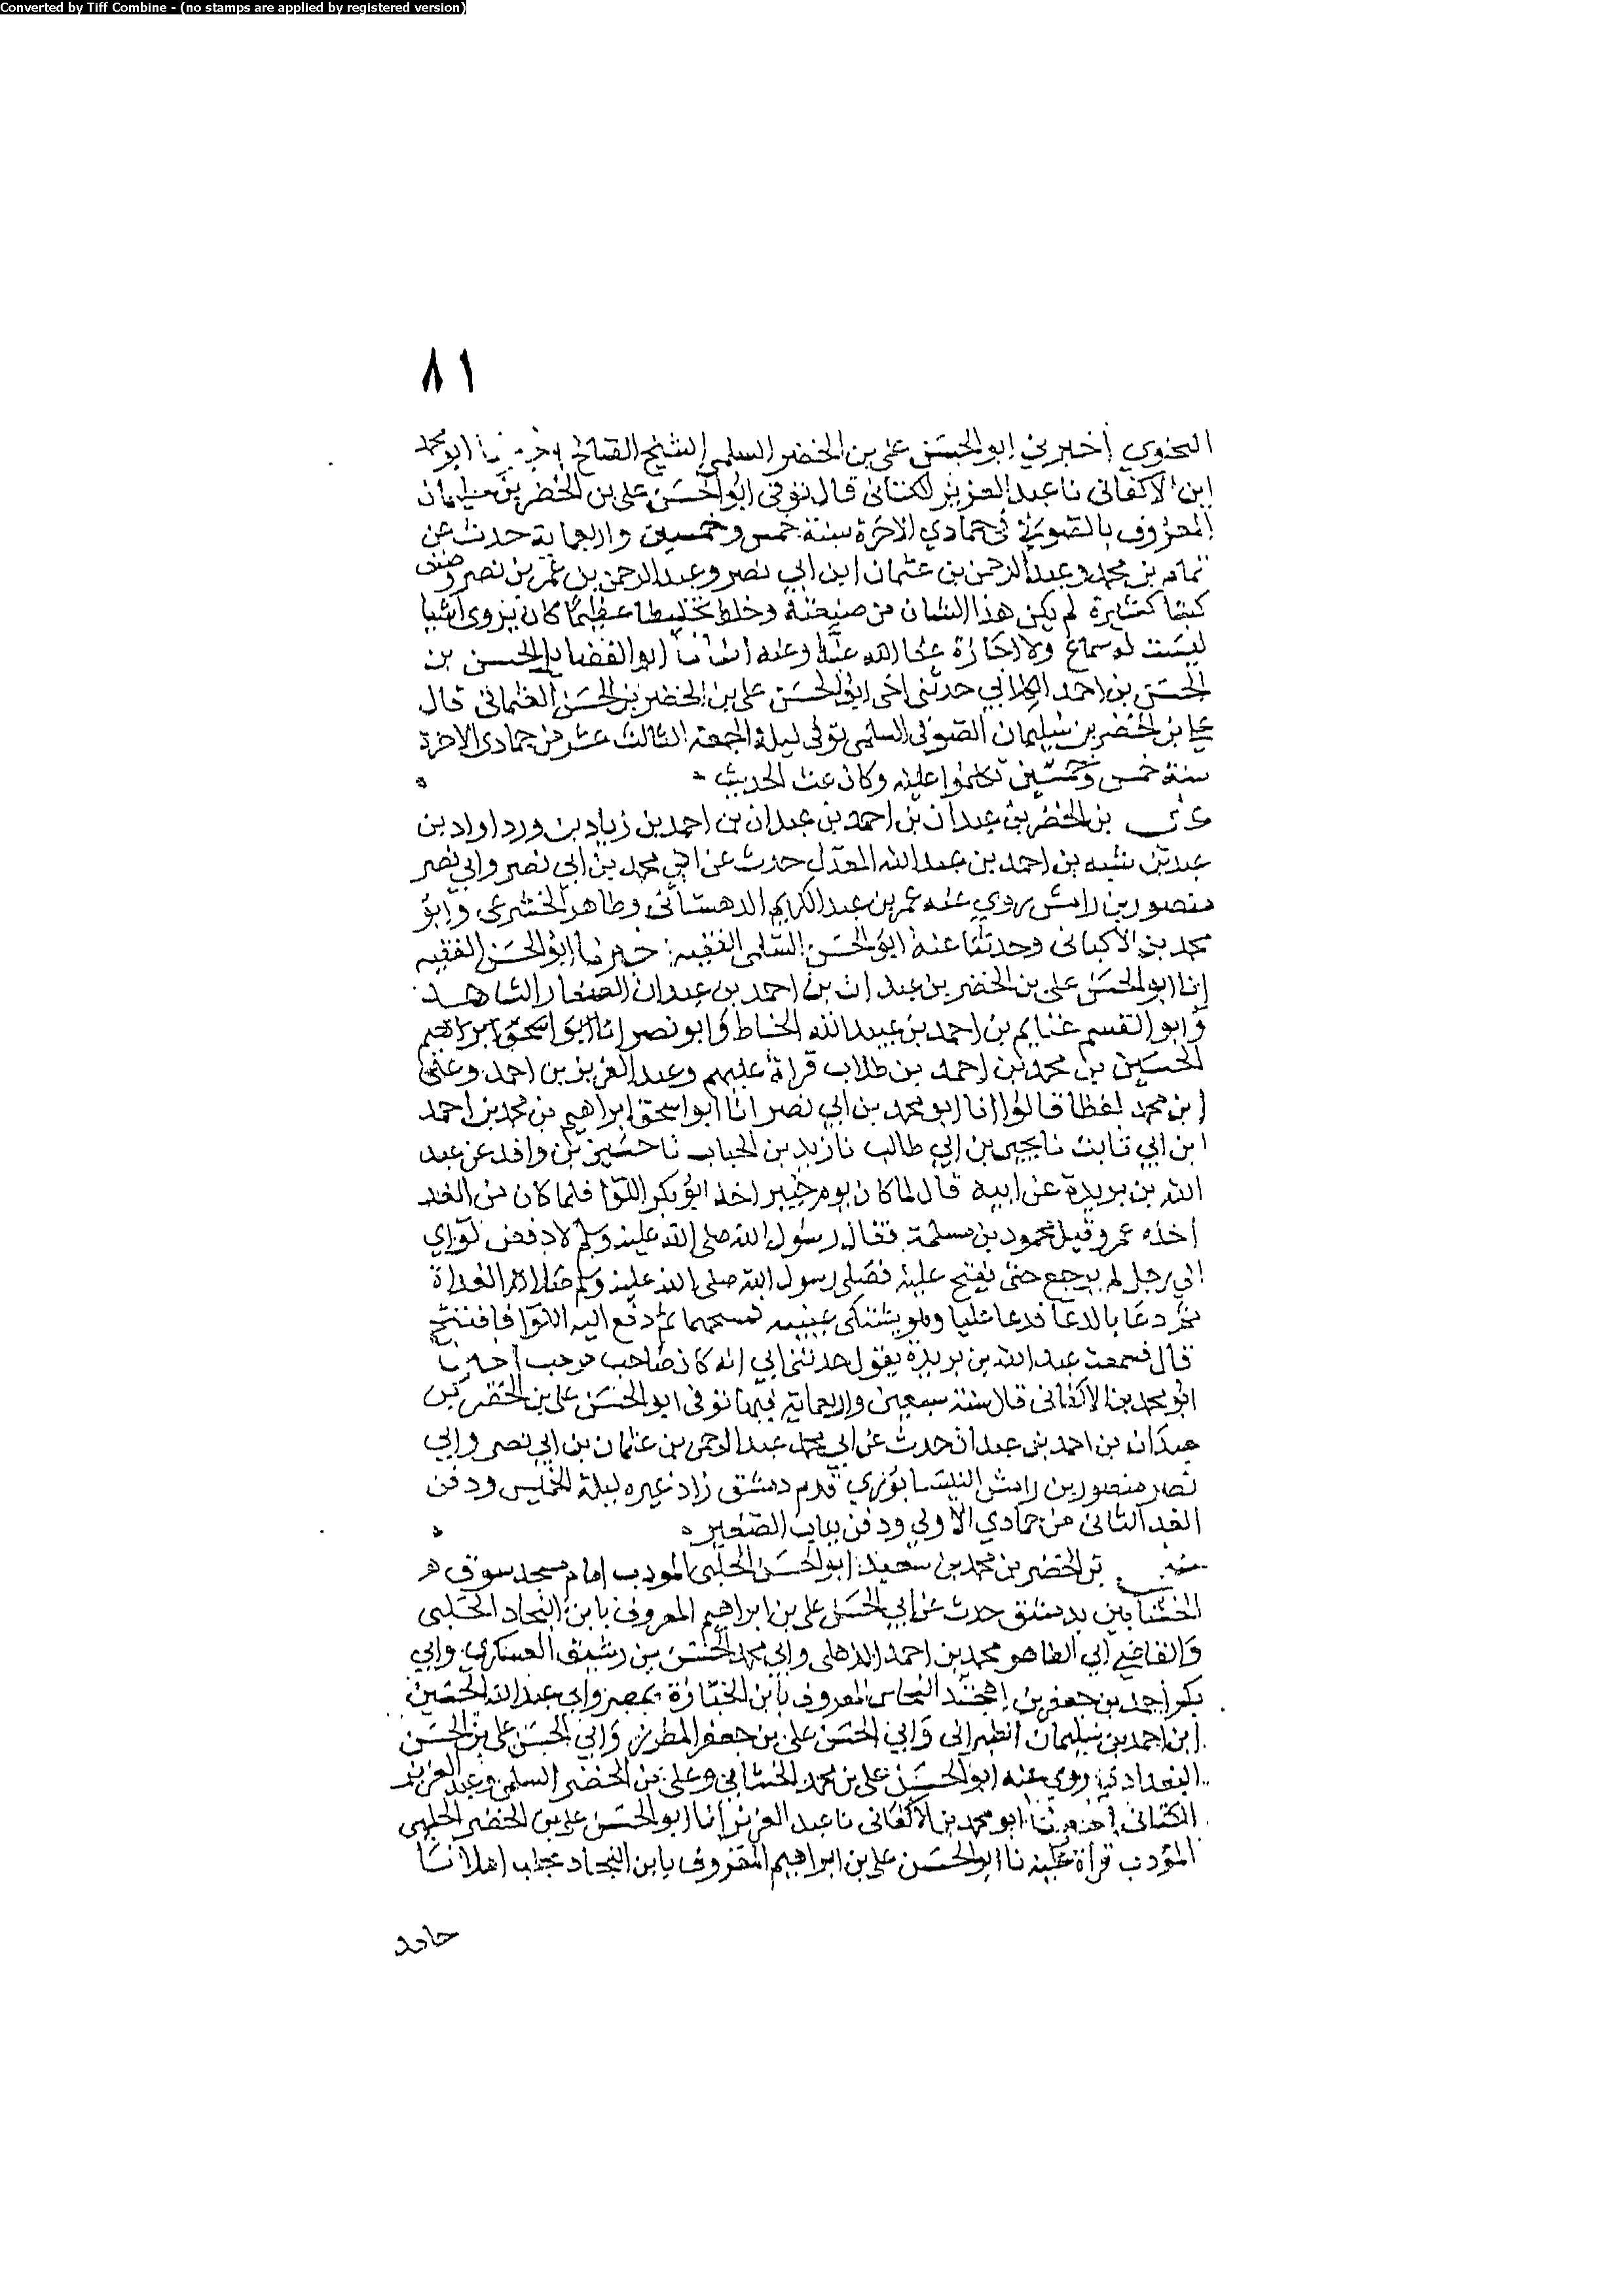 Converted by Tiff Combine - (no stamps are applied by registered version)
٨١
النحوي أخبرني ابو الحسن علي بن الخضر السلمي الشيخ الصالح ابو محمد
ابن الاكفاني نا عبد العزيز الكتاني قال توفي ابو الحسن علي بن الخضر بن سليمان
المعروف بالصوفي في جمادي الاخرة سنة خمس وخمسين واربعماية حدث عن
تمام بن محمد وعبد الرحمن بن عثمان ابن ابي نصر وعبد الرحمن بن عمر بن نصر وصنف
كتبا كثيرة لم يكن هذا الشان من صنيعته وخلط تخليطا عظيما كان يروي اشيا
ليست له سماع ولا اجازة عفا الله عنا وعنه انبانا ابو الفضايل الحسن بن
الحسن بن احمد الكلابي حدثني اخي ابو الحسن علي بن الخضر بن الحسن العثماني قال
علي بن الخضر بن سليمان الصوفي السلمي توفي ليلة الجمعة الثالث عشر من جمادى الاخرة
سنة خمس وخمسين تكلموا عليه وكان غث الحديث
علي بن الخضر بن عبدان بن احمد بن عبدان بن احمد بن زياد بن ورد اواد بن
عبد بن شبه بن احمد بن عبد الله المعدل حدث عن ابي محمد بن ابي نصر وابي نصر
منصور بن رامش روي عنه عمر بن عبد الكريم الدهستاني وطاهر الخشوعي وابو
محمد بن الاكفاني وحدثنا عنه ابو الحسن السلمي الفقيه اخبرنا ابو الحسن الفقيه
انا ابو الحسن علي بن الخضر بن عبدان بن احمد بن عبدان الصفار الشاهد
وابو القسم غنايم بن احمد بن عبيد الله الخياط وابو نصر انا ابو اسحق ابراهيم
الحسين بن محمد بن احمد بن طلاب قراة عليهم وعبد العزيز بن احمد وغني
ابن محمد لفظا قالوا انا ابو محمد بن ابي نصر انا ابو اسحق ابراهيم بن محمد بن احمد
ابن ابي ثابت نا يحيى بن ابي طالب نا زيد بن الحباب نا حسين بن وافد عن عبد
الله بن بريدة عن ابيه قال لما كان يوم خيبر اخذ ابو بكر اللوا فلما كان من الغد
اخذه عمر وقيل محمود بن مسلمة فقال رسول الله صلى الله عليه وسلم لادفعن لواي
الي رجل لم يرجع حتى يفتح عليه فصلى رسول الله صلى الله عليه وسلم صلاة الغداة
ثم دعا بالدعا فدعا عليا وهو يشتكي عينيه فمسحهما ثم دفع اليه اللوا فافتتح
قال فسمعت عبد الله بن بريدة يقول حدثني ابي انه كان صاحب مرحب اخبرنا
ابو محمد بن الاكفاني قال سنة سبعين واربعماية فيها توفي ابو الحسن علي بن الخضر بن
عبدان بن احمد بن عبدان حدث عن ابي محمد عبد الرحمن بن عثمان بن ابي نصر وابي
نصر منصور بن رامش النيسابوري قدم دمشق زاد غيره ليلة الخميس ودفن
الغد الثاني من جمادي الاولي ودفن بباب الصغير
بن الخضر بن محمد بن سعيد ابو الحسن الحلبي المودب امام مسجد سوق
الخشابين بدمشق حدث عن ابي الحسن علي بن ابراهيم المعروف بابن النجاد الحلبي
والقاضي ابي الطاهر محمد بن احمد الذهلي وابي محمد الحسن بن رشيق العسكري وابي
بكر احمد بن جعفر بن النحاس المعروف بابن الخبازة بمصر وابي عبد الله الحسين
ابن احمد بن سليمان الطبراني وابي الحسن علي بن جعفر المطرز وابي الحسن علي بن الحسن
البغدادي روي عنه ابو الحسن علي بن محمد الحنائي وعلي بن الخضر السلمي وعبد العزيز
الكتاني اخبرنا ابو محمد بن الاكفاني نا عبد العزيز انا ابو الحسن علي بن الخضر الحلبي
المؤدب قراة عليه نا ابو الحسن علي بن ابراهيم المعروف بابن النجاد بحلب املا نا
حامد